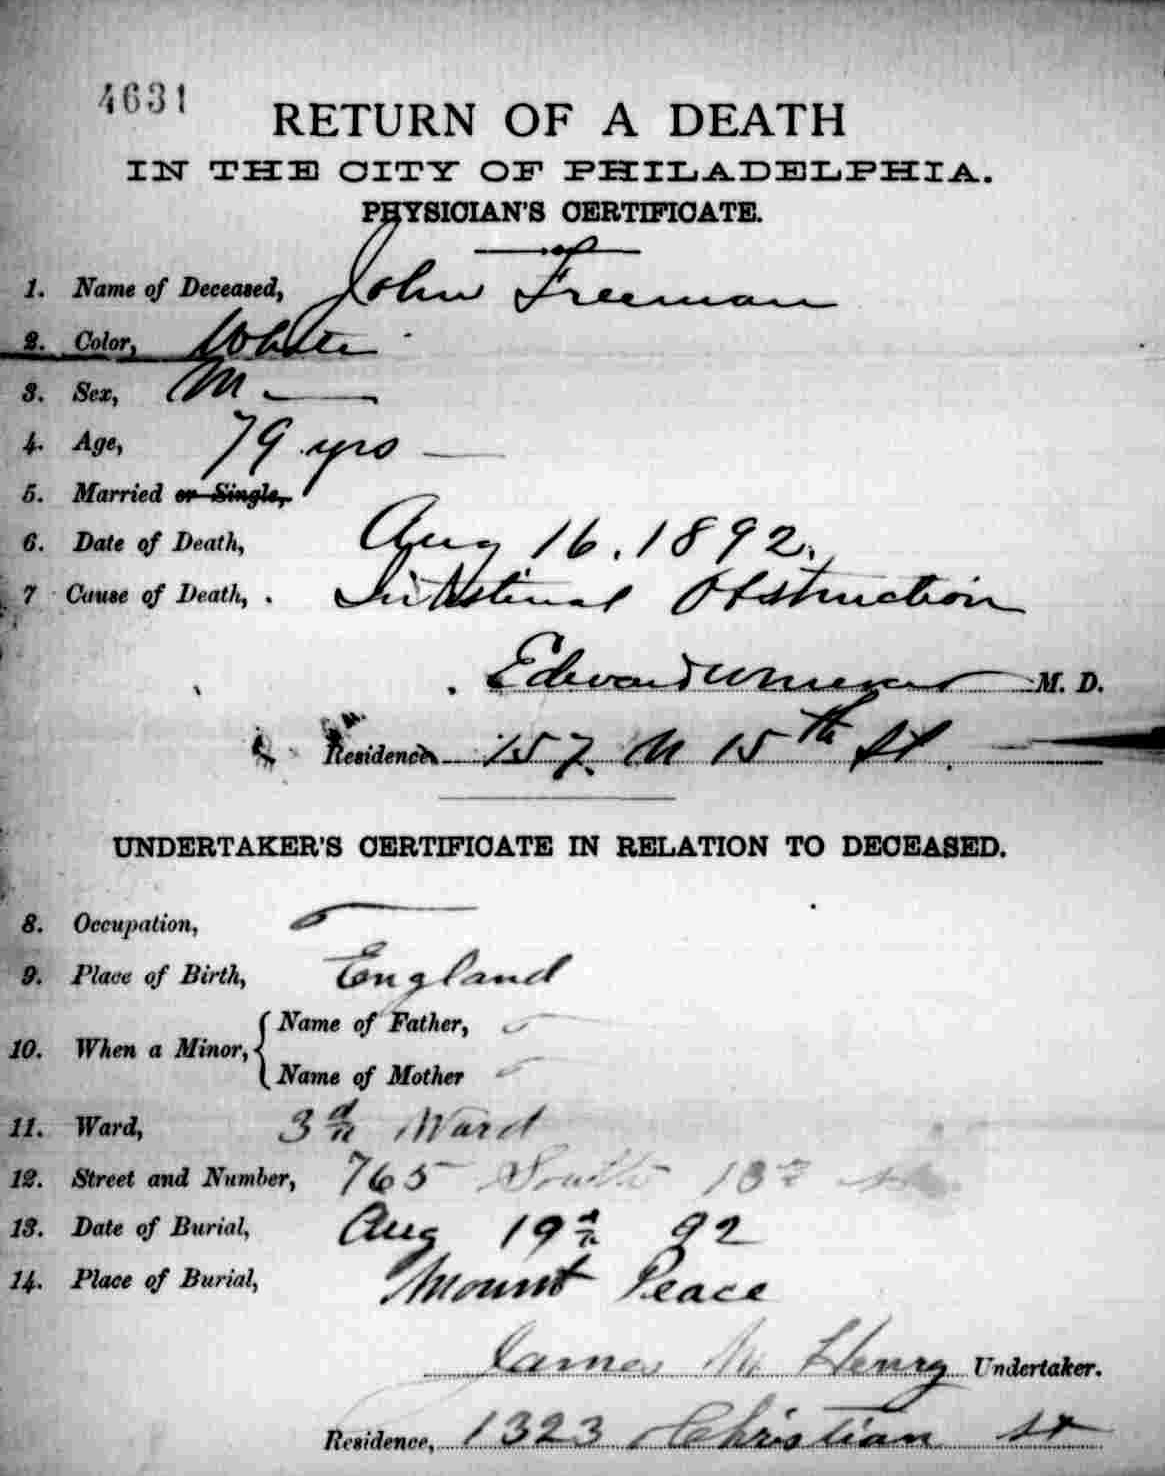 4631
RETURN OF A DEATH
IN THE CITY OF PHILADELPHIA.
PHYSICIAN'S CERTIFICATE.
1. Name of Deceased, John Freeman
2. Color, White
3. Sex, M
4. Age, 79 yrs
5. Married or Single,
6. Date of Death, Aug 16. 1892.
7 Cause of Death, . Intestinal Obstruction
Edward M. D.
Residence 157 N 15th St.
UNDERTAKER'S CERTIFICATE IN RELATION TO DECEASED.
8. Occupation,
9. Place of Birth, England
10. When a Minor, { Name of Father,
Name of Mother
11. Ward, 3d Ward
12. Street and Number, 765 South
13. Date of Burial, Aug 19 92
14. Place of Burial, Mount Peace
James M Henry Undertaker.
Residence, 1323 Christian st